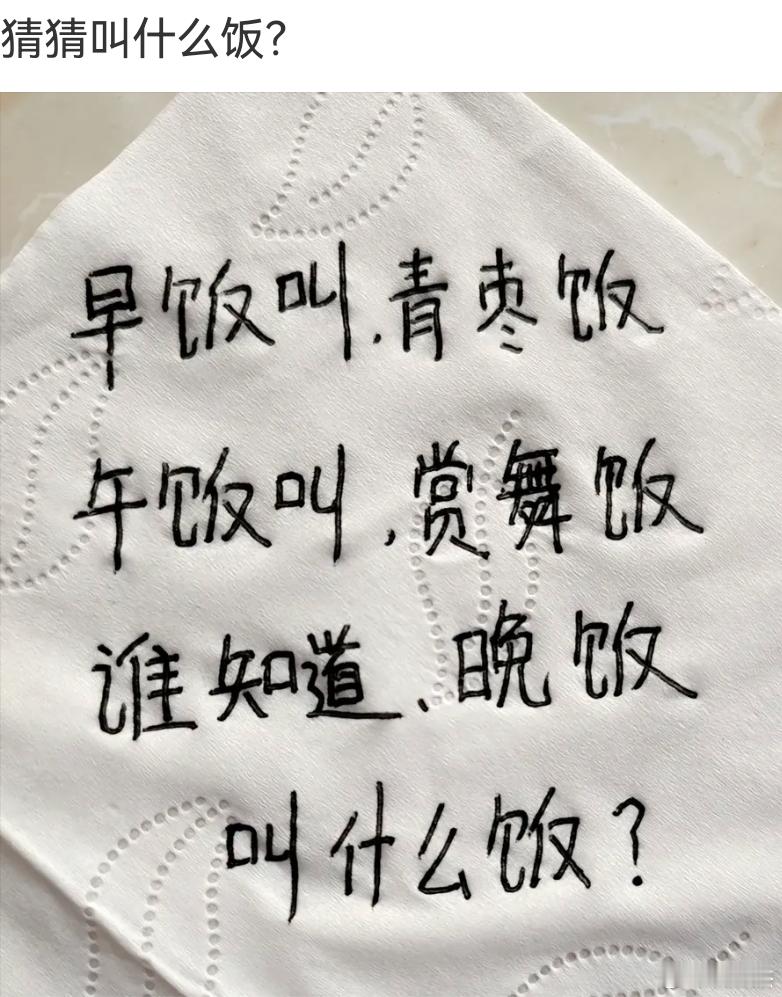 猜猜叫什么饭?
早饭叫.青枣饭
午饭叫.赏舞饭
谁知道.晚饭
叫什么饭?